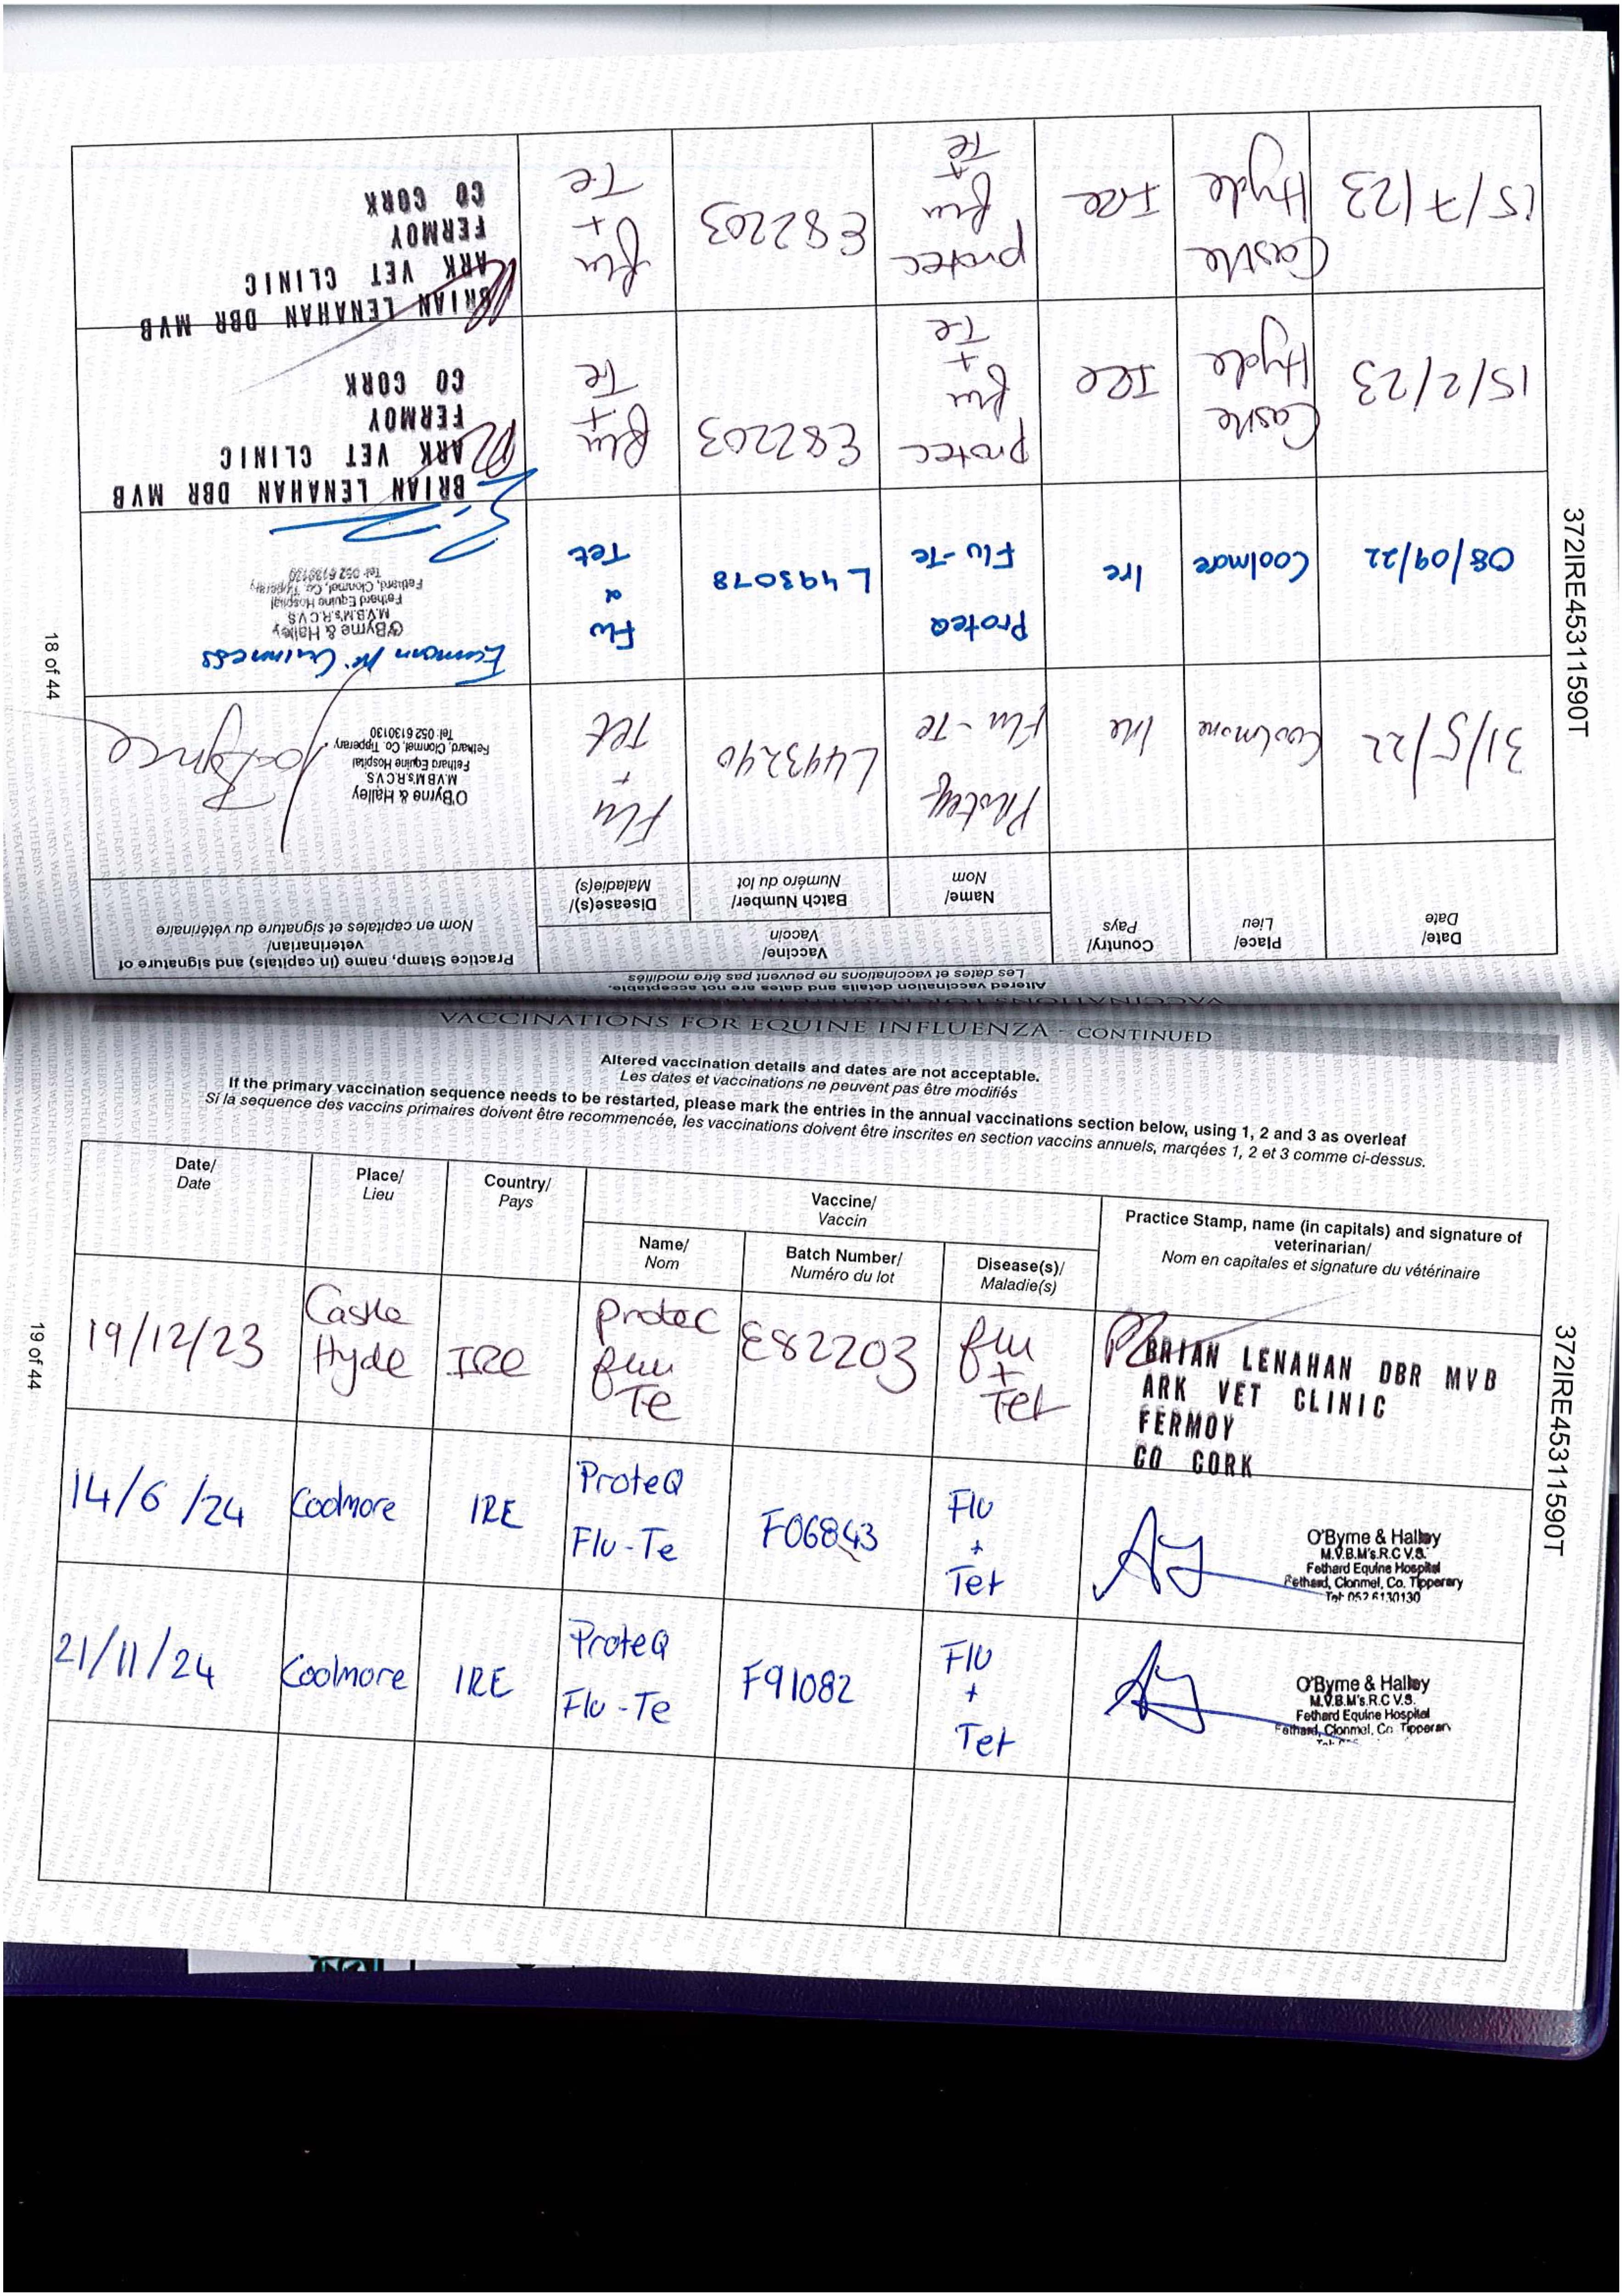 VACCINATIONS FOR EQUINE INFLUENZA - CONTINUED
Altered vaccination details and dates are not acceptable.
Les dates et vaccinations ne peuvent pas être modifiés
If the primary vaccination sequence needs to be restarted, please mark the entries in the annual vaccinations section below, using 1, 2 and 3 as overleaf
Si la sequence des vaccins primaires doivent être recommencée, les vaccinations doivent être inscrites en section vaccins annuels, marqées 1, 2 et 3 comme ci-dessus.
Date/
Date
Place/
Lieu
Country/
Pays
Vaccine/
Vaccin
Name/
Nom
Batch Number/
Numéro du lot
Disease(s)/
Maladie(s)
Practice Stamp, name (in capitals) and signature of
veterinarian/
Nom en capitales et signature du vétérinaire
19/12/23
Castle
Hyde
IRe
protec
flu
Te
E82203
flu
+
Tet
BRIAN LENAHAN DBR MVB
ARK VET CLINIC
FERMOY
CO CORK
14/6/24
Coolmore
IRE
ProteQ
Flu-Te
F06843
Flu
+
Tet
O'Byrne & Halley
M.V.B.M's.R.C.V.S.
Fethard Equine Hospital
Fethard, Clonmel, Co. Tipperary
Tel: 052 6130130
21/11/24
Coolmore
IRE
ProteQ
Flu-Te
F91082
Flu
+
Tet
O'Byrne & Halley
M.V.B.M's.R.C.V.S.
Fethard Equine Hospital
Fethard, Clonmel, Co. Tipperary
19 of 44
372IRE45311590T
Altered vaccination details and dates are not acceptable.
Les dates et vaccinations ne peuvent pas être modifiés
Date/
Date
Place/
Lieu
Country/
Pays
Vaccine/
Vaccin
Name/
Nom
Batch Number/
Numéro du lot
Disease(s)/
Maladie(s)
Practice Stamp, name (in capitals) and signature of
veterinarian/
Nom en capitales et signature du vétérinaire
31/5/22
Coolmore
Ire
Proteq
Flu-Te
L443240
Flu
+
Tet
O'Byrne & Halley
M.V.B.M's.R.C.V.S.
Fethard Equine Hospital
Fethard, Clonmel, Co. Tipperary
Tel: 052 6130130
08/09/22
Coolmore
Ire
Proteq
Flu-Te
L493078
Flu
&
Tet
O'Byrne & Halley
M.V.B.M's.R.C.V.S.
Fethard Equine Hospital
Fethard, Clonmel, Co. Tipperary
Tel: 052 6130130
15/2/23
Castle
Hyde
IRe
protec
flu
+
Te
E82203
flu
+
Te
BRIAN LENAHAN DBR MVB
ARK VET CLINIC
FERMOY
CO CORK
15/7/23
Castle
Hyde
IRe
protec
flu
+
Te
E82203
flu
+
Te
BRIAN LENAHAN DBR MVB
ARK VET CLINIC
FERMOY
CO CORK
18 of 44
372IRE45311590T